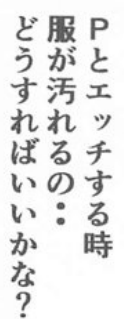 Pとエッチする時
服が汚れるの：
どうすればいいかな？